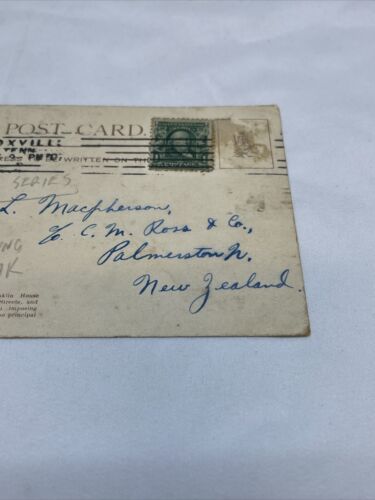 POST CARD.
OXVILLE
TENN.
WRITTEN ON TH
SERIES
L. Macpherson,
C. M. Ross & Co.,
Palmerston N.
New Zealand.
klin House
Streets, and
imposing
principal